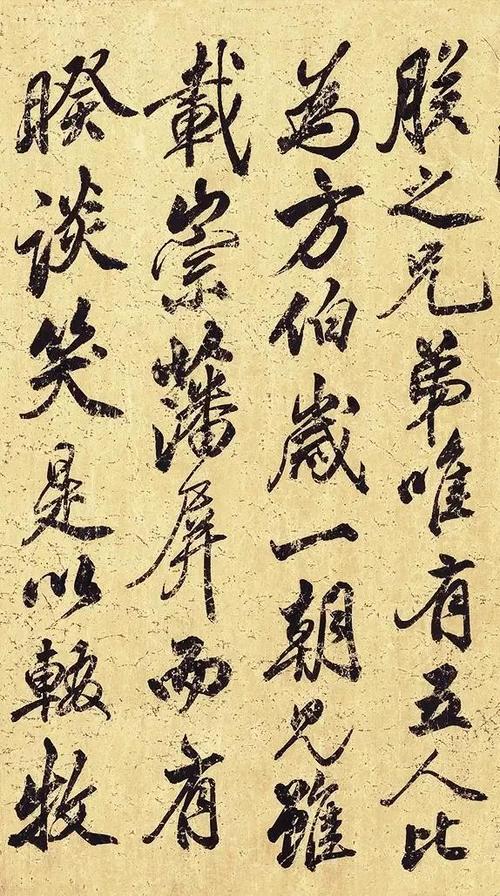 朕之兄弟唯有五人比
為方伯歲一朝見雖
載崇藩屏而有
睽談笑是以輟牧